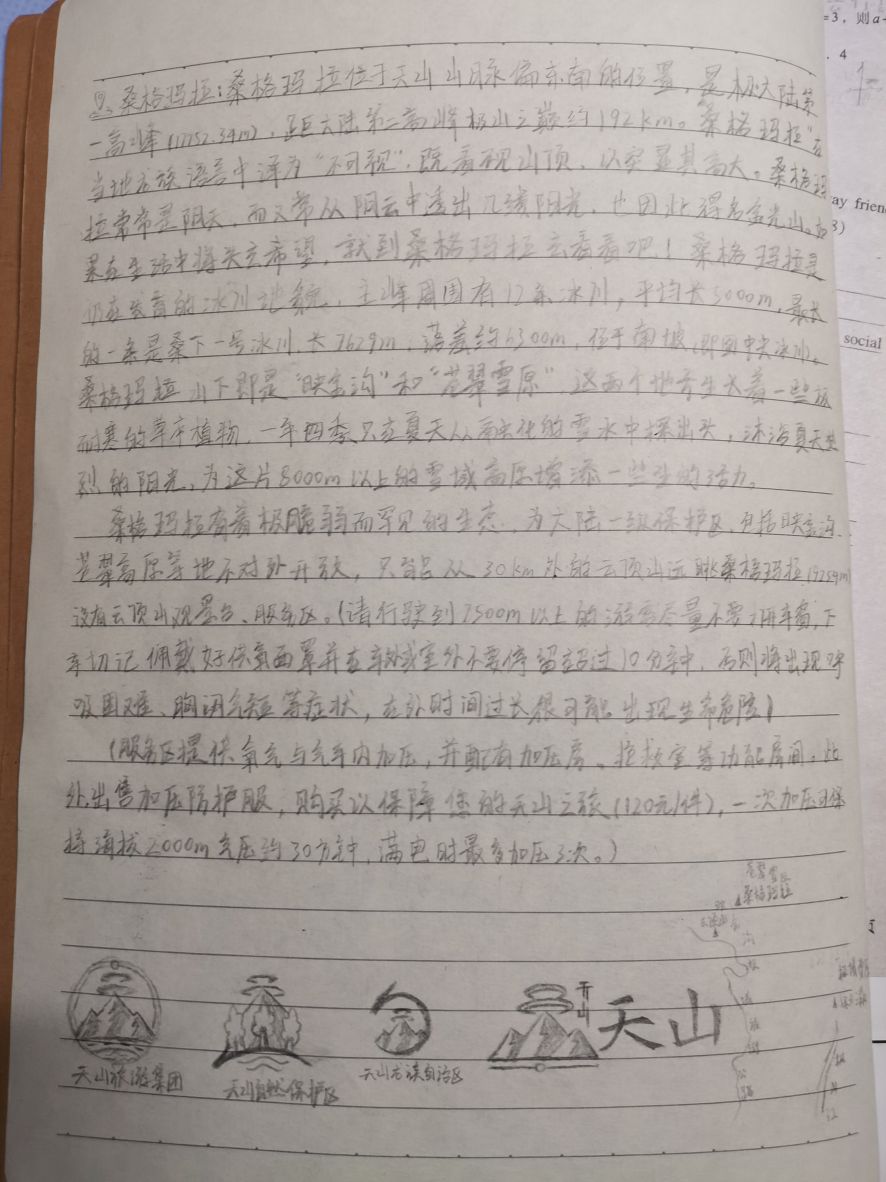 2、桑格玛拉:桑格玛拉位于天山山脉偏东南的位置,是极大陆第
一高峰(17752.34m),距大陆第二高峰极山之巅约192km。"桑格玛拉"在
当地龙族语言中译为"不可视",既看不见山顶,以突显其高大。桑格玛
拉常常是阴天,而又常从阴云中透出几缕阳光,也因此得名金光山。如
果在生活中将失去希望,就到桑格玛拉去看看吧!桑格玛拉是
仍在发育的冰川地貌,主峰周围有12条冰川,平均长5000m,最长
的一条是桑下一号冰川,长7629m,落差约6300m,位于南坡,即图中大冰川。
桑格玛拉山下即是"映金沟"和"苍翠雪原",这两个地方生长着一些极
耐寒的草本植物,一年四季只在夏天从融化的雪水中探出头,沐浴夏天炽
烈的阳光,为这片8000m以上的雪域高原增添一些生的活力。
桑格玛拉有着极脆弱而罕见的生态,为大陆一级保护区,包括映金沟、
苍翠高原等地不对外开放,只能从30km外的云顶山远眺桑格玛拉(9259m)
设有云顶山观景台、服务区。(请行驶到7500m以上的游客尽量不要开车窗,下
车切记佩戴好供氧面罩并在车外或室外不要停留超过10分钟,否则将出现呼
吸困难、胸闷气短等症状,在外时间过长很可能出现生命危险)
(服务区提供氧气与汽车内加压,并配有加压房、抢救室等功能房间。此
外出售加压防护服,购买以保障您的天山之旅(1120元/件),一次加压可保
持海拔2000m气压约30分钟,满电时最多加压3次。)
桑格玛拉
天山
天山
天山旅游集团
天山自然保护区
天山龙族自治区
=3,则a
4
ay frien
3)
social